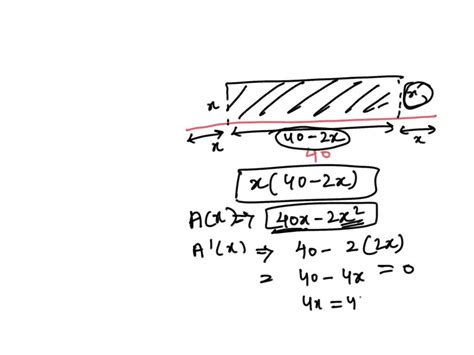 x
x
40-2x
x
x
40
x(40-2x)
A(x) ⇒ 40x-2x²
A'(x) ⇒ 40-2(2x)
= 40-4x = 0
4x = 4